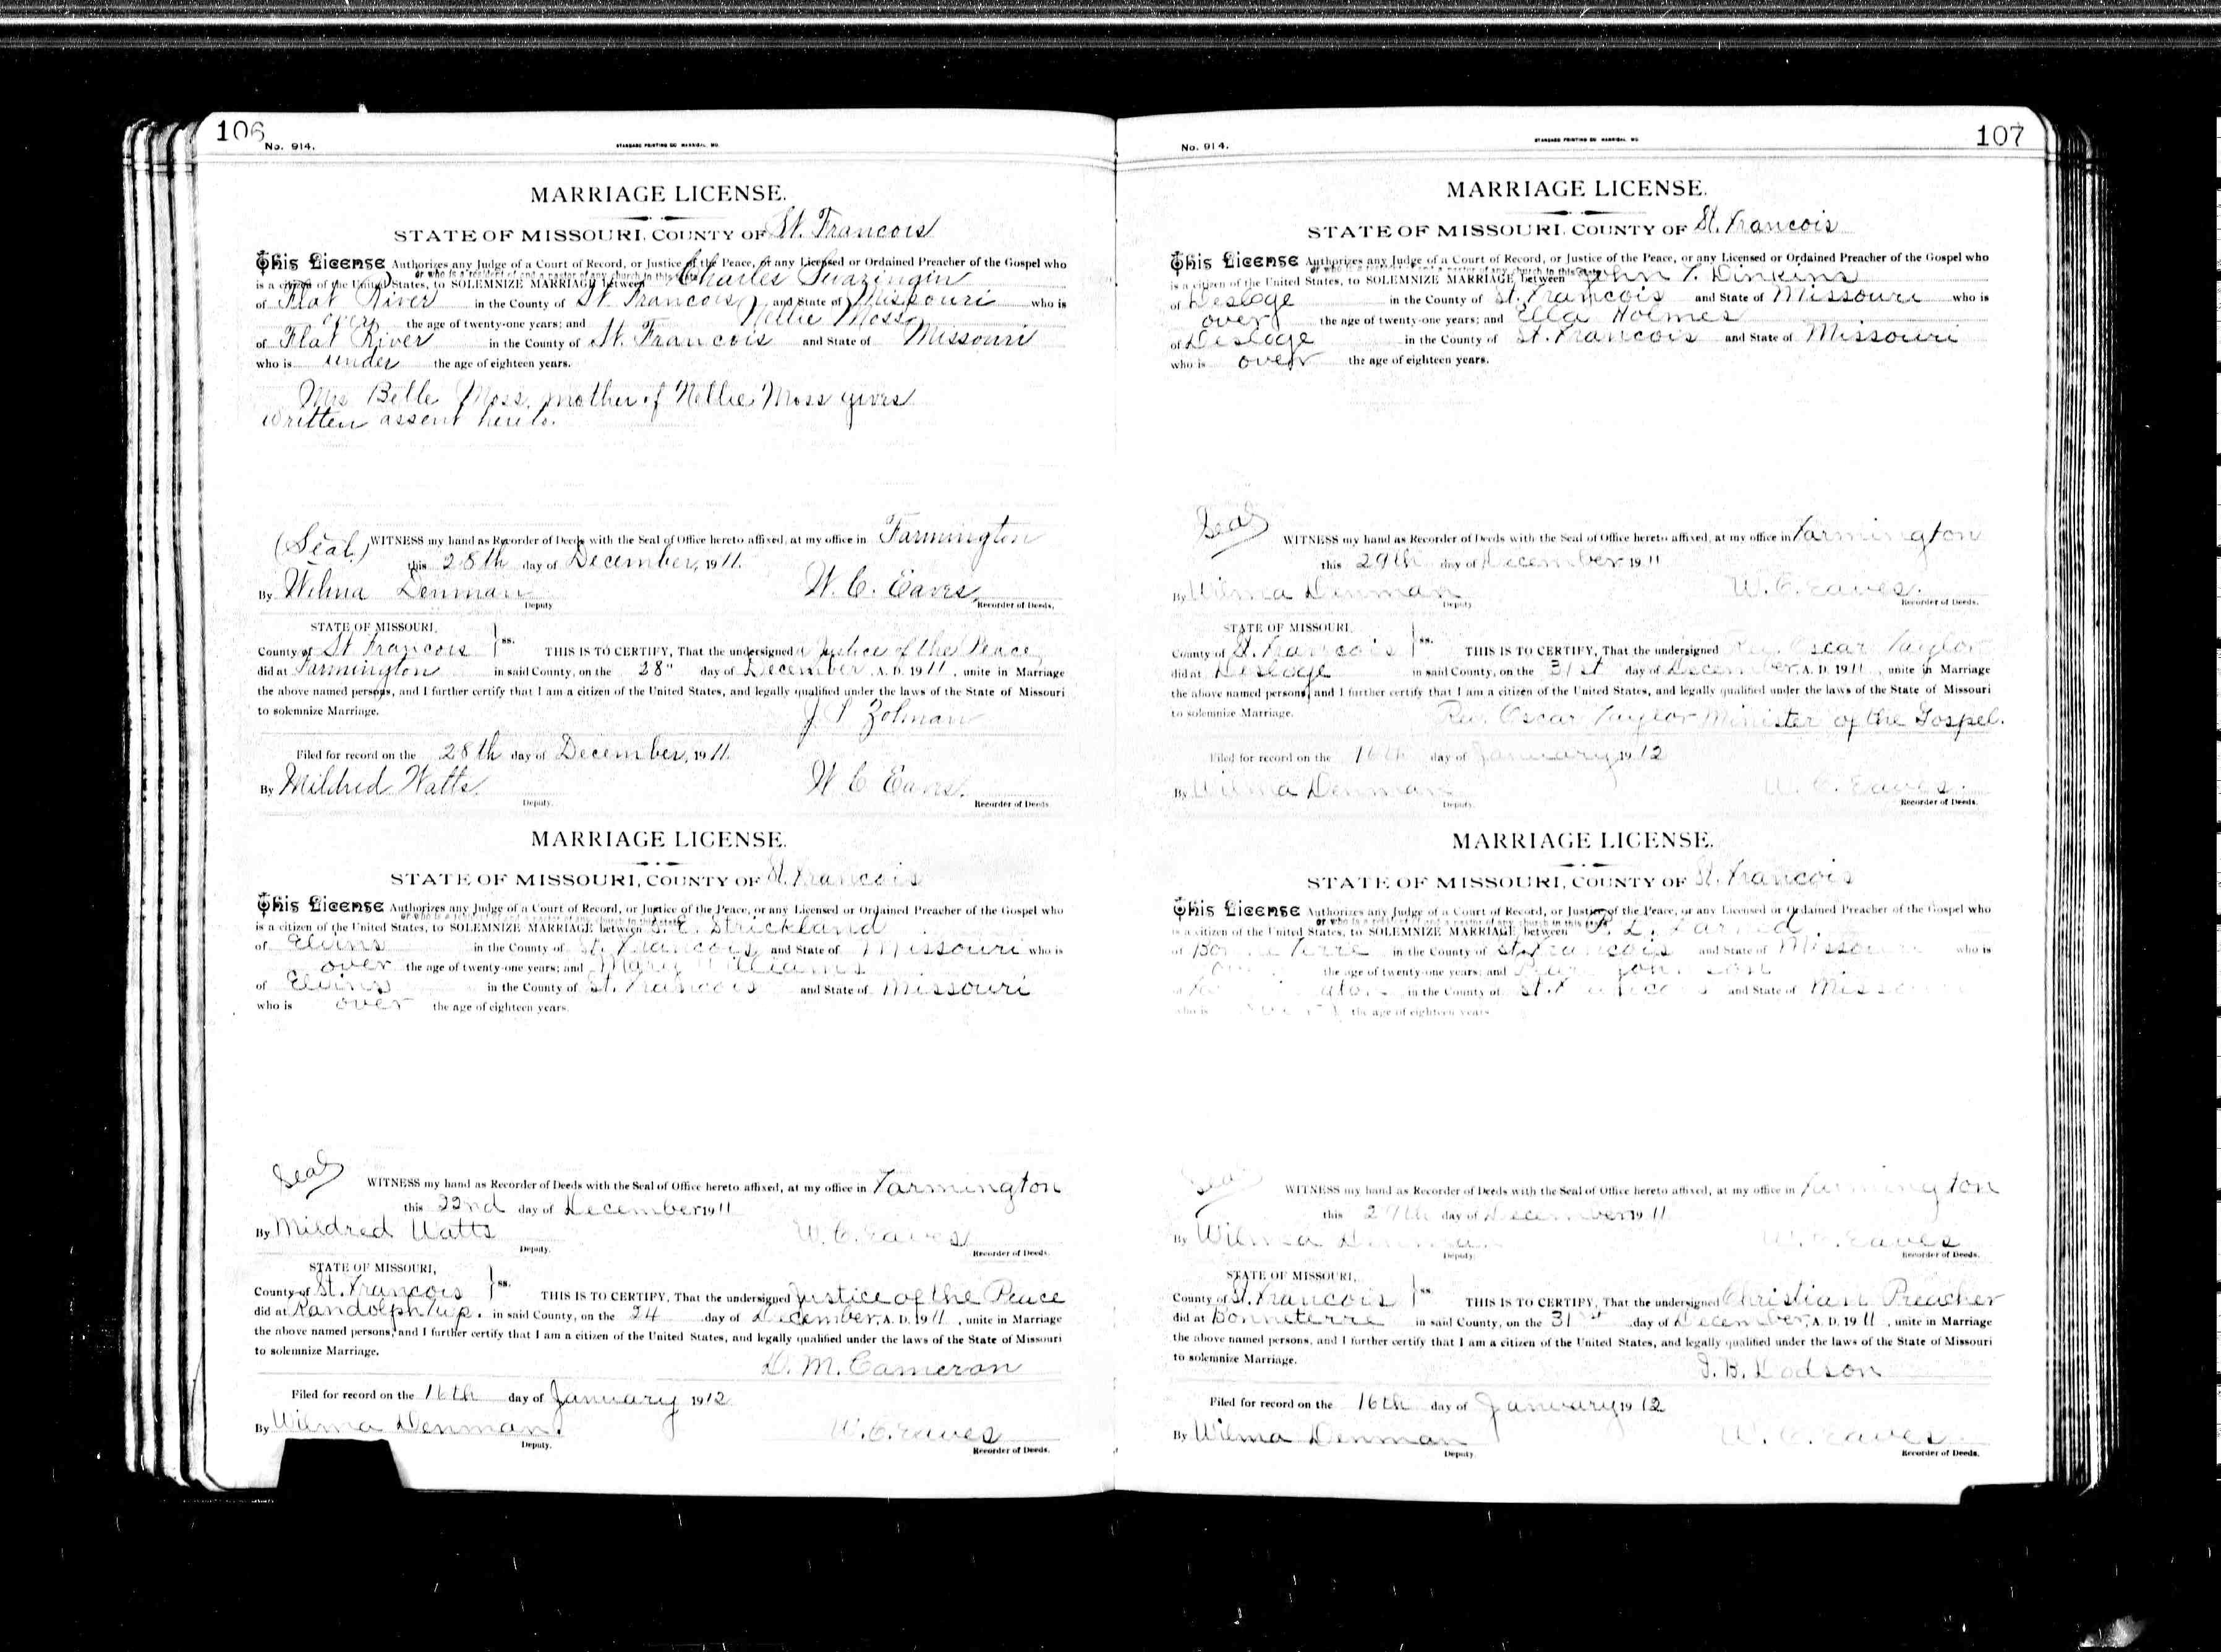 106
No. 914.
STANDARD PRINTING CO. HANNIBAL, MO.
MARRIAGE LICENSE.
STATE OF MISSOURI, COUNTY OF St. Francois
This License Authorizes any Judge of a Court of Record, or Justice of the Peace, or any Licensed or Ordained Preacher of the Gospel who
or who is a resident of and a pastor of any church in this state
is a citizen of the United States, to SOLEMNIZE MARRIAGE between Charles Swazingin
of Flat River in the County of St. Francois and State of Missouri who is
over the age of twenty-one years; and Nellie Moss
of Flat River in the County of St. Francois and State of Missouri
who is under the age of eighteen years.
Mrs Belle Moss, mother of Nellie Moss gives
written assent hereto.
(Seal) WITNESS my hand as Recorder of Deeds with the Seal of Office hereto affixed, at my office in Farmington
this 28th day of December, 1911.
By Wilma Denman W. C. Eaves
Deputy Recorder of Deeds.
STATE OF MISSOURI,
County of St Francois ss. THIS IS TO CERTIFY, That the undersigned a Justice of the Peace
did at Farmington in said County, on the 28" day of December, A. D. 1911, unite in Marriage
the above named persons, and I further certify that I am a citizen of the United States, and legally qualified under the laws of the State of Missouri
to solemnize Marriage. J S Zolman
Filed for record on the 28th day of December, 1911.
By Mildred Watts W C Eaves.
Deputy. Recorder of Deeds
MARRIAGE LICENSE.
STATE OF MISSOURI, COUNTY OF St. Francois
This License Authorizes any Judge of a Court of Record, or Justice of the Peace, or any Licensed or Ordained Preacher of the Gospel who
or who is a resident of and a pastor of any church in this state
is a citizen of the United States, to SOLEMNIZE MARRIAGE between S. E. Strickland
of Elvins in the County of St. Francois and State of Missouri who is
over the age of twenty-one years; and Mary Williams
of Elvins in the County of St. Francois and State of Missouri
who is over the age of eighteen years.
Seal WITNESS my hand as Recorder of Deeds with the Seal of Office hereto affixed, at my office in Farmington
this 22nd day of December 1911
By Mildred Watts W. C. Eaves
Deputy. Recorder of Deeds.
STATE OF MISSOURI,
County of St. Francois ss. THIS IS TO CERTIFY, That the undersigned Justice of the Peace
did at Randolph twp. in said County, on the 24 day of December, A. D. 1911, unite in Marriage
the above named persons, and I further certify that I am a citizen of the United States, and legally qualified under the laws of the State of Missouri
to solemnize Marriage. D. M. Cameron
Filed for record on the 16th day of January 1912
By Wilma Denman. W. C. Eaves
Deputy. Recorder of Deeds.
107
No. 914.
STANDARD PRINTING CO. HANNIBAL, MO.
MARRIAGE LICENSE.
STATE OF MISSOURI, COUNTY OF St. Francois
This License Authorizes any Judge of a Court of Record, or Justice of the Peace, or any Licensed or Ordained Preacher of the Gospel who
or who is a resident of and a pastor of any church in this state
is a citizen of the United States, to SOLEMNIZE MARRIAGE between John T. Dinkins
of Desloge in the County of St. Francois and State of Missouri who is
over the age of twenty-one years; and Ella Holmes
of Desloge in the County of St. Francois and State of Missouri
who is over the age of eighteen years.
Seal WITNESS my hand as Recorder of Deeds with the Seal of Office hereto affixed, at my office in Farmington
this 29th day of December 1911
By Wilma Denman W. C. Eaves.
Deputy Recorder of Deeds.
STATE OF MISSOURI,
County of St. Francois ss. THIS IS TO CERTIFY, That the undersigned Rev. Oscar Taylor
did at Desloge in said County, on the 31st day of December, A. D. 1911, unite in Marriage
the above named persons, and I further certify that I am a citizen of the United States, and legally qualified under the laws of the State of Missouri
to solemnize Marriage. Rev. Oscar Taylor Minister of the Gospel.
Filed for record on the 16th day of January 1912
By Wilma Denman W. C. Eaves.
Deputy. Recorder of Deeds.
MARRIAGE LICENSE.
STATE OF MISSOURI, COUNTY OF St. Francois
This License Authorizes any Judge of a Court of Record, or Justice of the Peace, or any Licensed or Ordained Preacher of the Gospel who
or who is a resident of and a pastor of any church in this state
is a citizen of the United States, to SOLEMNIZE MARRIAGE between
of Bonne Terre in the County of St. Francois and State of Missouri who is
the age of twenty-one years; and
of in the County of St. Francois and State of Missouri
who is the age of eighteen years
Seal WITNESS my hand as Recorder of Deeds with the Seal of Office hereto affixed, at my office in Farmington
this 29th day of December 1911
By Wilma Denman W. C. Eaves
Deputy. Recorder of Deeds.
STATE OF MISSOURI,
County of St. Francois ss. THIS IS TO CERTIFY, That the undersigned Christian Preacher
did at Bonneterre in said County, on the 31st day of December, A. D. 1911, unite in Marriage
the above named persons, and I further certify that I am a citizen of the United States, and legally qualified under the laws of the State of Missouri
to solemnize Marriage. J. B. Dodson
Filed for record on the 16th day of January 1912
By Wilma Denman W. C. Eaves
Deputy. Recorder of Deeds.